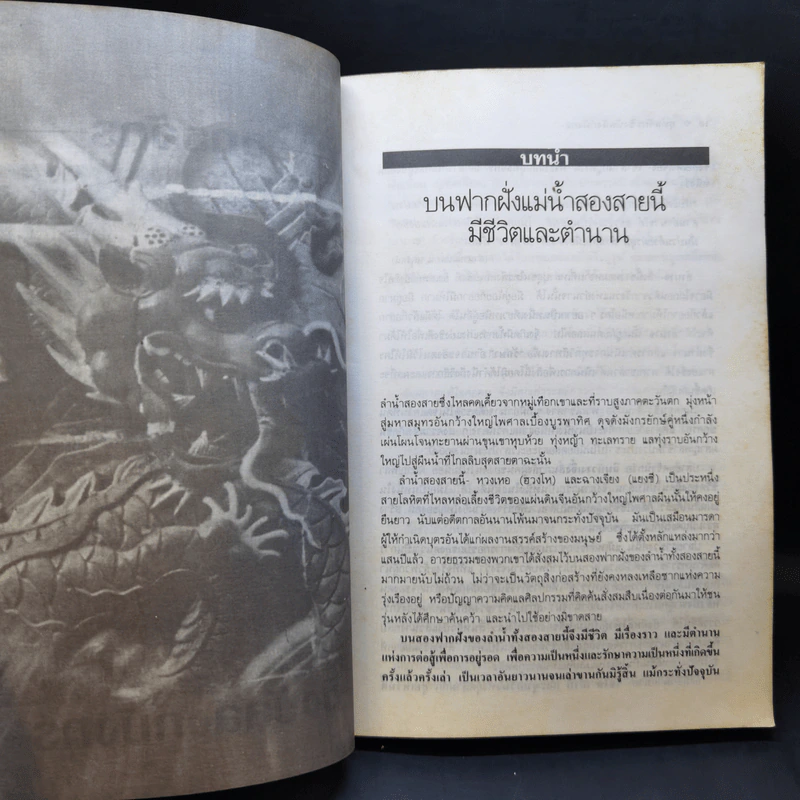 บทนำ
บนฟากฝั่งแม่น้ำสองสายนี้
มีชีวิตและตำนาน
ลำน้ำสองสายซึ่งไหลคดเคี้ยวจากหมู่เทือกเขาและที่ราบสูงภาคตะวันตก มุ่งหน้า
สู่มหาสมุทรอันกว้างใหญ่ไพศาลเบื้องบูรพาทิศ ดุจดังมังกรยักษ์คู่หนึ่งกำลัง
เผ่นโผนโจนทะยานผ่านขุนเขาหุบห้วย ทุ่งหญ้า ทะเลทราย แลทุ่งราบอันกว้าง
ใหญ่ไปสู่ผืนน้ำที่ไกลลิบสุดสายตาฉะนั้น
ลำน้ำสองสายนี้- หวงเหอ (ฮวงโห) และฉางเจียง (แยงซี) เป็นประหนึ่ง
สายโลหิตที่ไหลหล่อเลี้ยงชีวิตของแผ่นดินจีนอันกว้างใหญ่ไพศาลผืนนั้นให้คงอยู่
ยืนยาว นับแต่อดีตกาลอันนานโพ้นมาจนกระทั่งปัจจุบัน มันเป็นเสมือนมารดา
ผู้ให้กำเนิดบุตรอันได้แก่ผลงานสรรค์สร้างของมนุษย์ ซึ่งได้ตั้งหลักแหล่งมากว่า
แสนปีแล้ว อารยธรรมของพวกเขาได้สั่งสมไว้บนสองฟากฝั่งของลำน้ำทั้งสองสายนี้
มากมายนับไม่ถ้วน ไม่ว่าจะเป็นวัตถุสิ่งก่อสร้างที่ยังคงหลงเหลือซากแห่งความ
รุ่งเรืองอยู่ หรือปัญญาความคิดแลศิลปกรรมที่คิดค้นสั่งสมสืบเนื่องต่อกันมาให้ชน
รุ่นหลังได้ศึกษาค้นคว้า และนำไปใช้อย่างมิขาดสาย
บนสองฟากฝั่งของลำน้ำทั้งสองสายนี้จึงมีชีวิต มีเรื่องราว และมีตำนาน
แห่งการต่อสู้เพื่อการอยู่รอด เพื่อความเป็นหนึ่งและรักษาความเป็นหนึ่งที่เกิดขึ้น
ครั้งแล้วครั้งเล่า เป็นเวลาอันยาวนานจนเล่าขานกันมิรู้สิ้น แม้กระทั่งปัจจุบัน